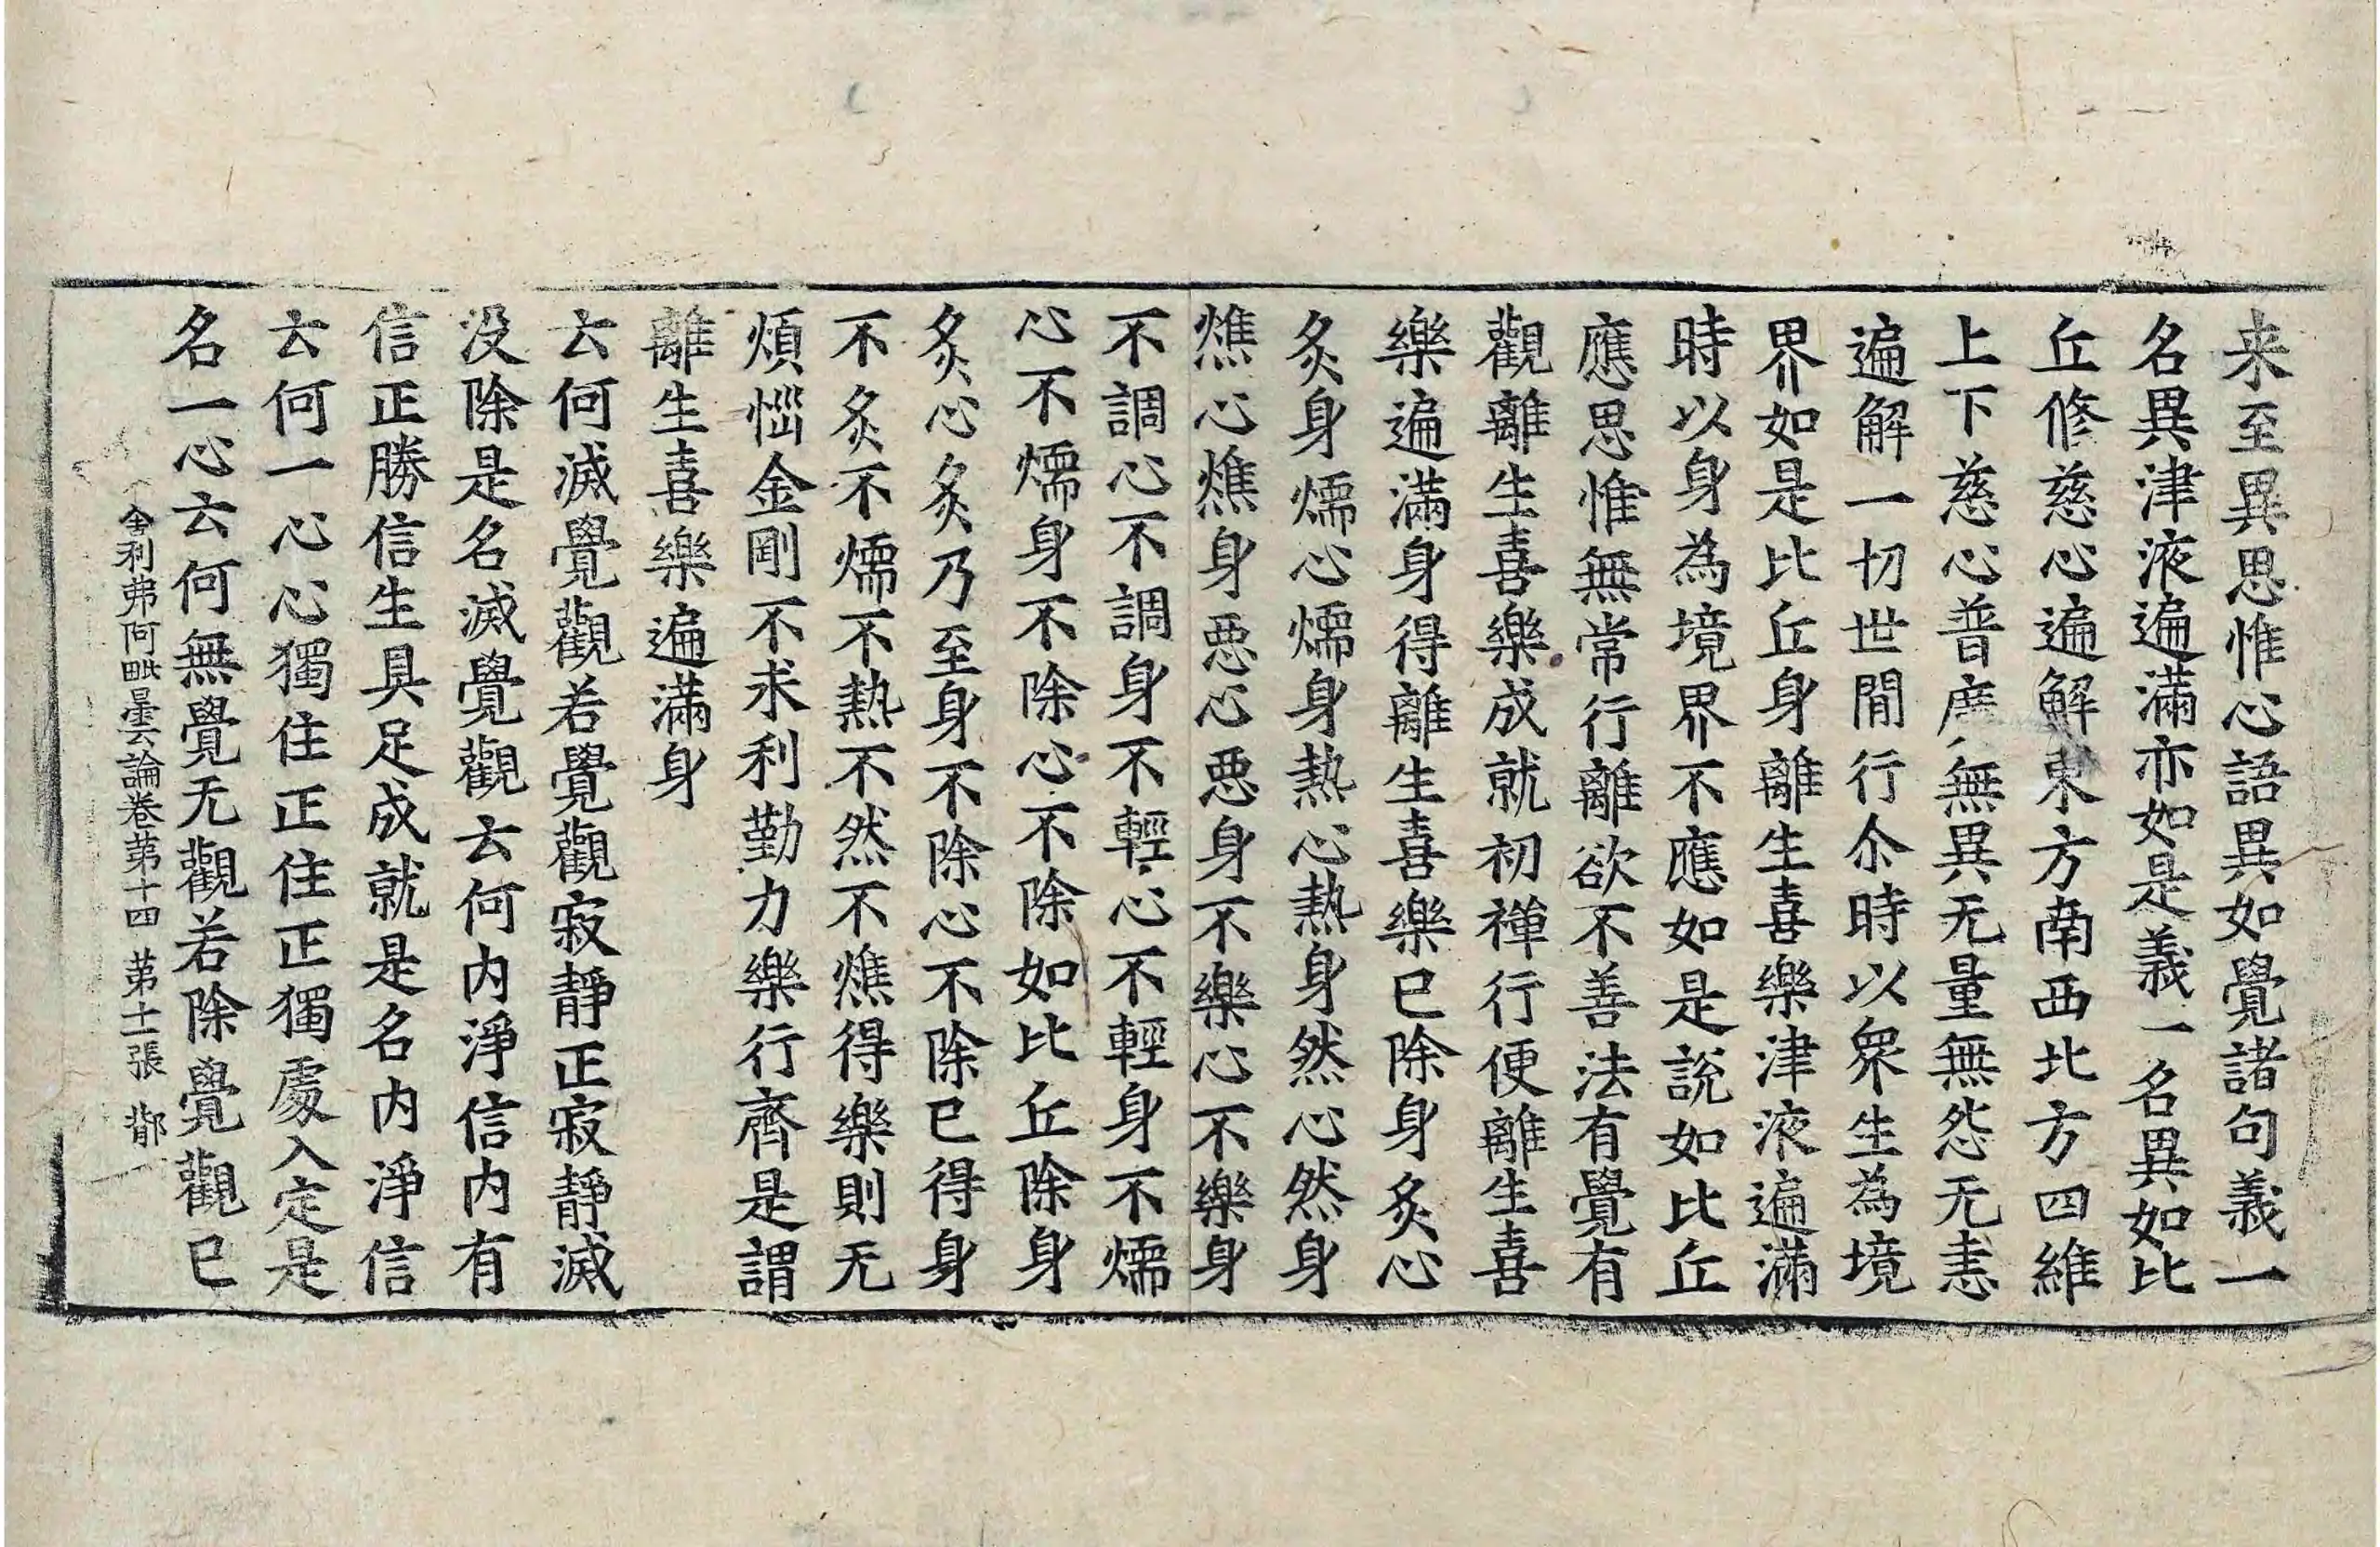 来至異思惟心語異如覺諸句義一
名異津液遍滿亦如是義一名異如比
丘修慈心遍解東方南西北方四維
上下慈心普廣無異无量無怨无恚
遍解一切世間行尒時以衆生為境
界如是比丘身離生喜樂津液遍滿
時以身為境界不應如是說如比丘
應思惟無常行離欲不善法有覺有
觀離生喜樂成就初禪行便離生喜
樂遍滿身得離生喜樂已除身炙心
炙身燸心燸身熱心熱身然心然身
燋心燋身惡心惡身不樂心不樂身
不調心不調身不輕心不輕身不燸
心不燸身不除心不除如比丘除身
炙心炙乃至身不除心不除已得身
不炙不燸不熱不然不燋得樂則无
煩惱金剛不求利勤力樂行齊是謂
離生喜樂遍滿身
云何滅覺觀若覺觀寂靜正寂靜滅
没除是名滅覺觀云何内淨信内有
信正勝信生具足成就是名内淨信
云何一心心獨住正住正獨處入定是
名一心云何無覺无觀若除覺觀已
舍利弗阿毗曇論卷苐十四 苐十二張